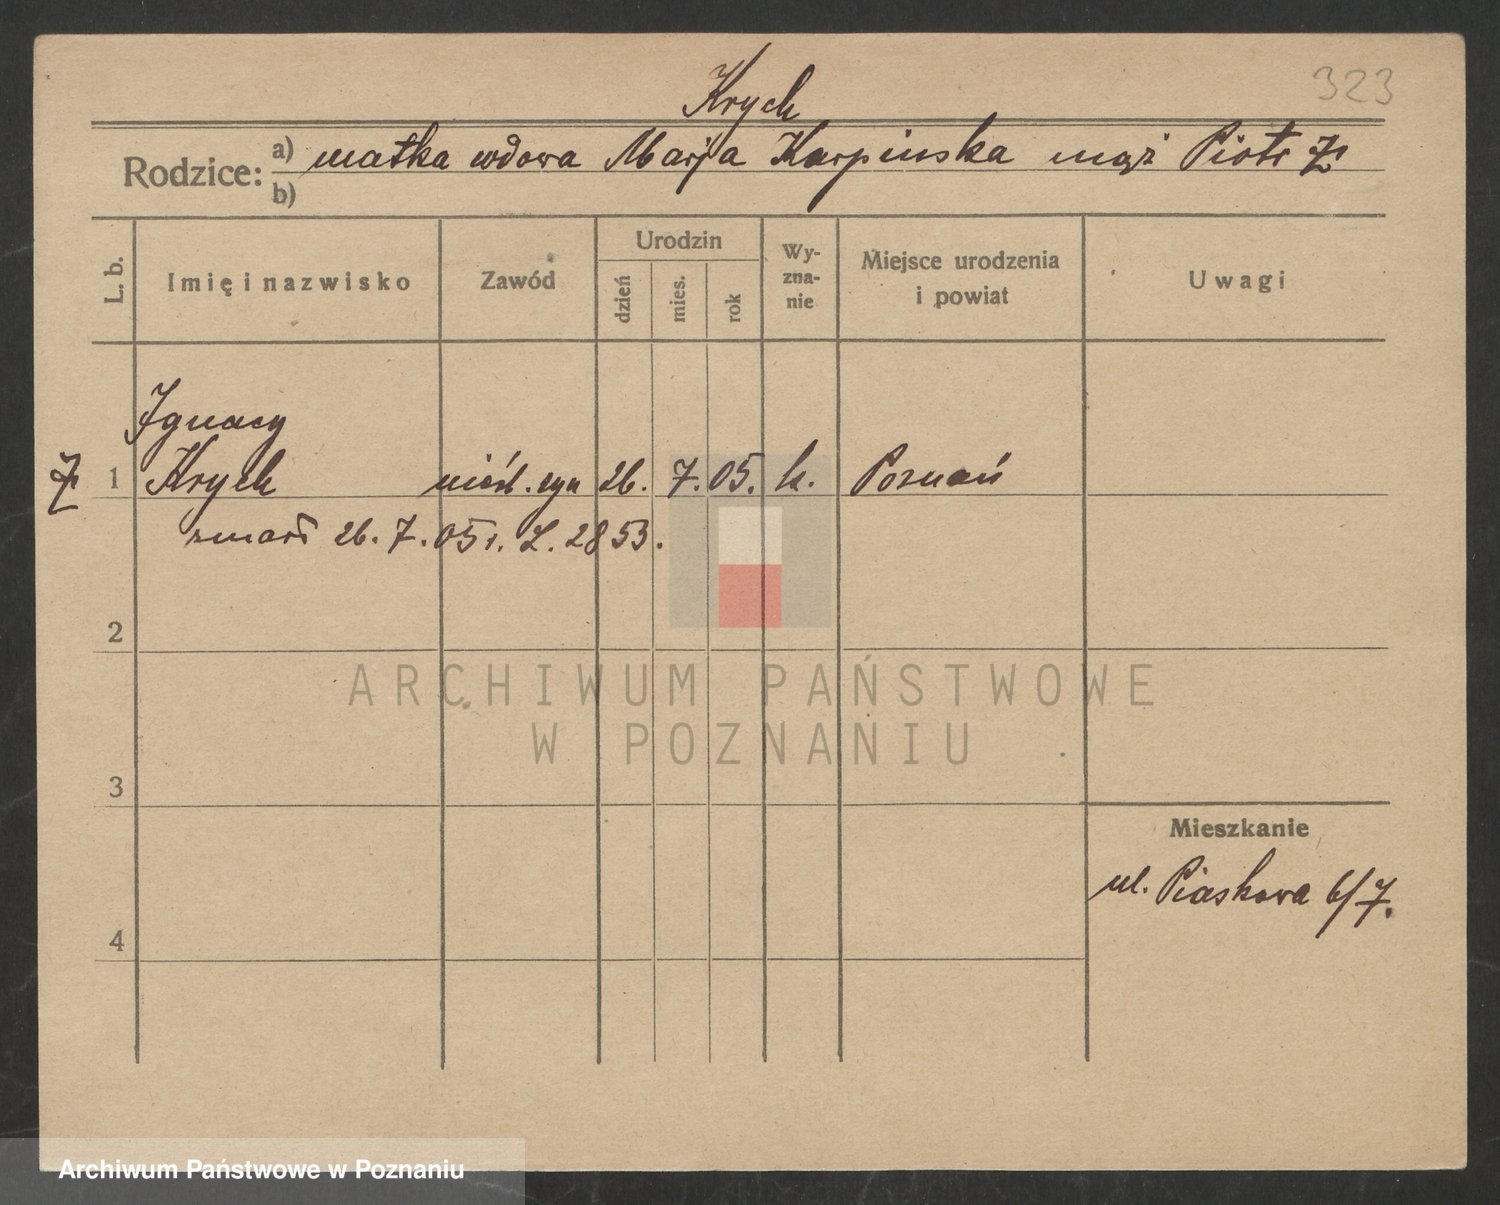 323
Krych
Rodzice: a) matka wdowa Marja Karpinska mąż Piotr Z
b)
L. b.
Imię i nazwisko
Zawód
Urodzin
dzień
mies.
rok
Wy-
zna-
nie
Miejsce urodzenia
i powiat
Uwagi
Ignacy
Z 1 Krych nieśl. syn 26. 7. 05. k. Poznań
zmarł 26. 7. 05 r. L. 2853.
2
3
4
Mieszkanie
ul. Piaskowa 6/7.
ARCHIWUM PAŃSTWOWE
W POZNANIU
Archiwum Państwowe w Poznaniu